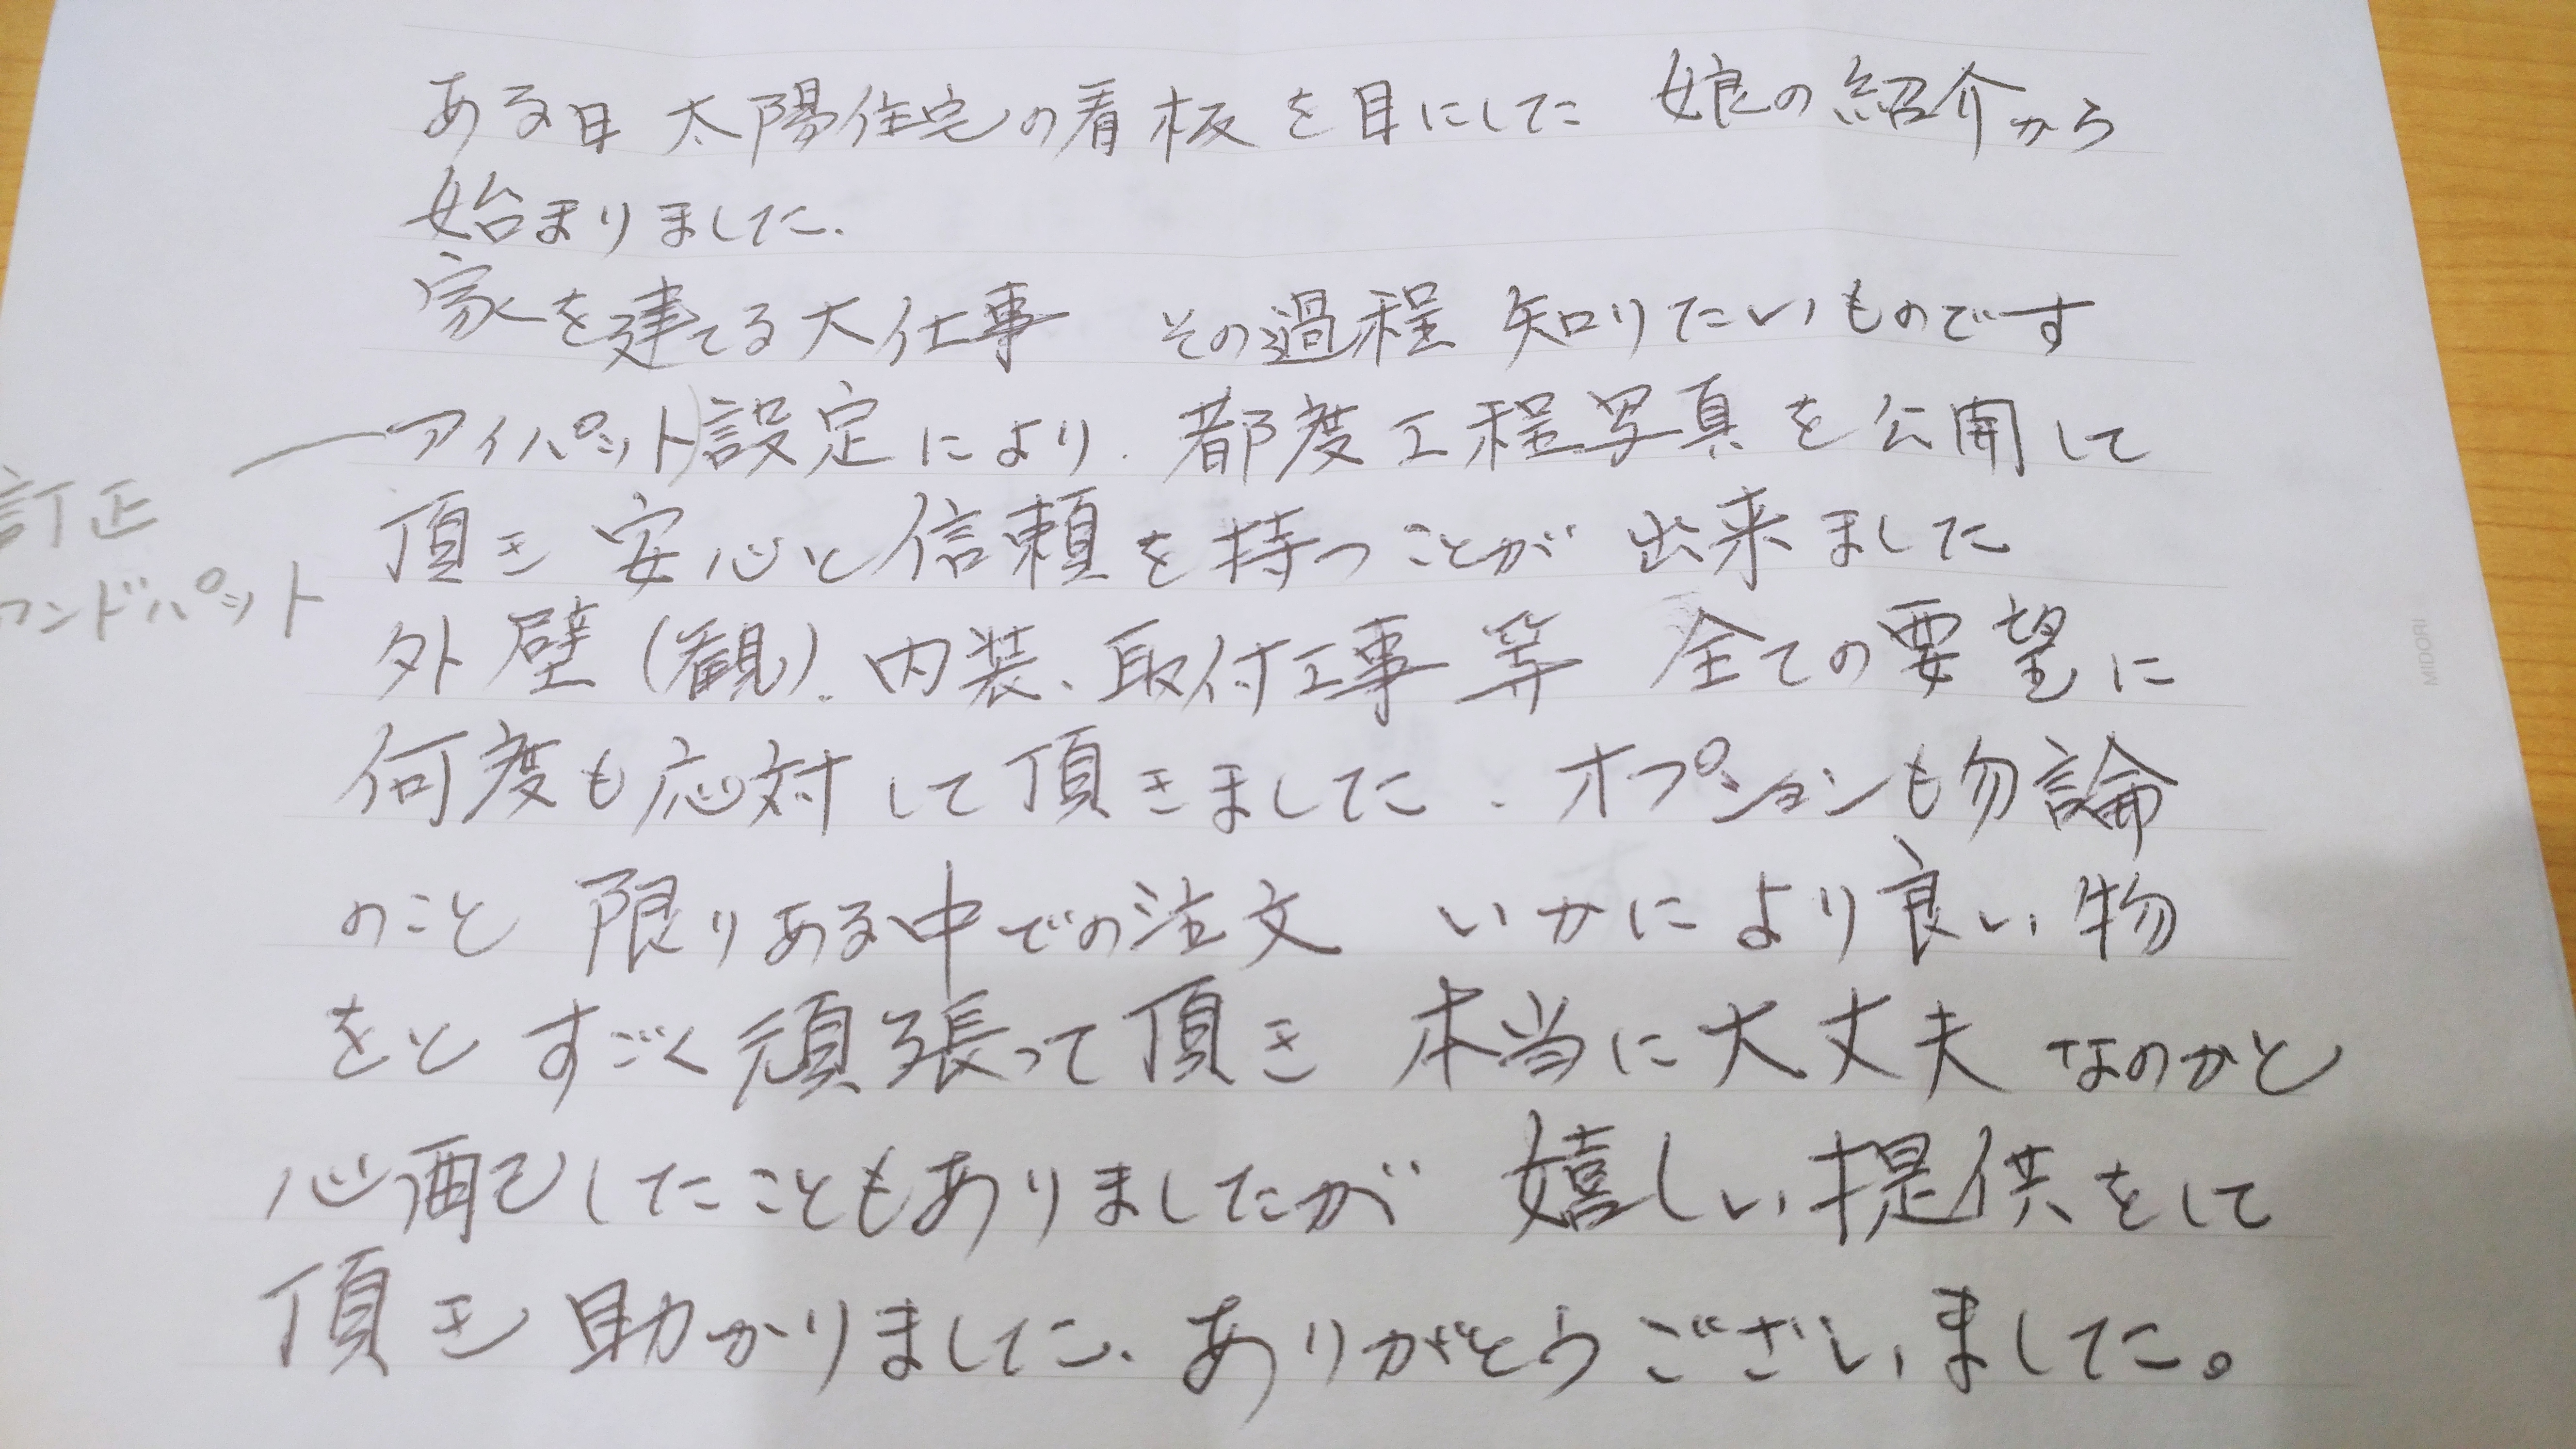 ある日 太陽住宅の看板を目にした 娘の紹介から
始まりました.
家を建てる大仕事 その過程 知りたいものです
アイパット)設定により. 都度工程写真を公開して
訂正
ンドパット
頂き 安心と信頼を持つことが 出来ました
外壁(観)、内装、取付工事等 全ての要望に
何度も応対して頂きました. オプションも勿論
のこと 限りある中での注文 いかにより良い物
をと すごく頑張って頂き 本当に大丈夫 なのかと
心配したこともありましたが 嬉しい提供をして
頂き 助かりました、ありがとうございました。
MIDORI